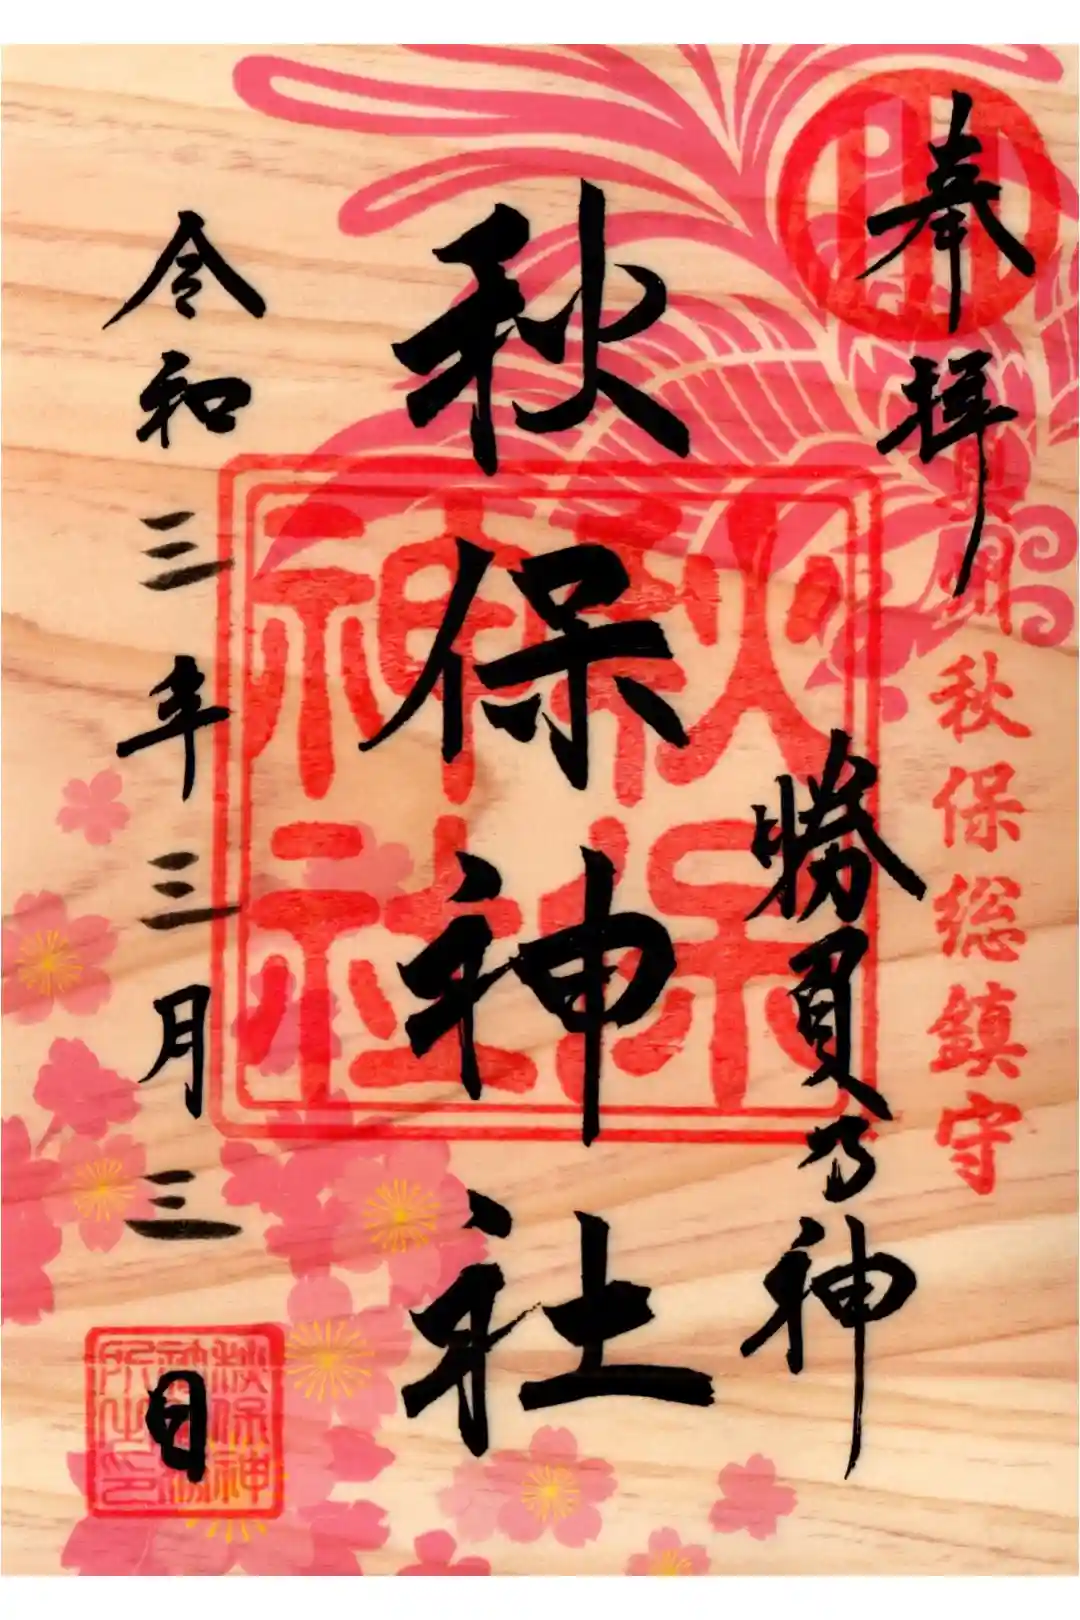 奉拝
興朗秋保総鎮守
勝負乃神
秋保神社
秋保
神社
令和三年三月三日
秋保神
所之印